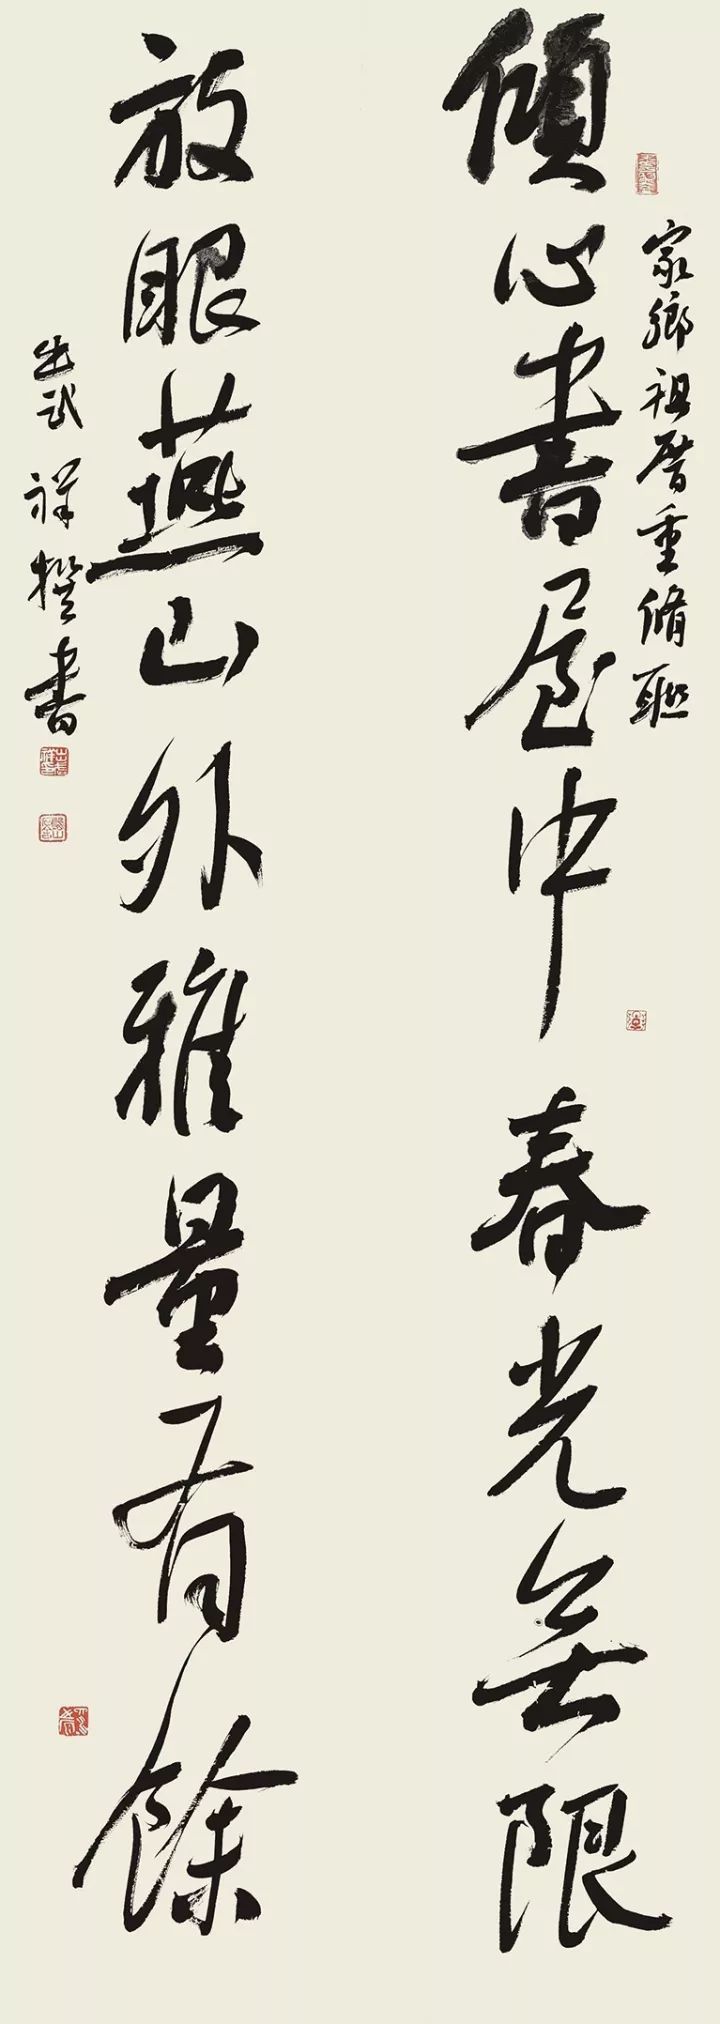 家鄉祖厝重脩聯
傾心書屋中春光無限
放眼燕山外雅量有餘
祥撰書